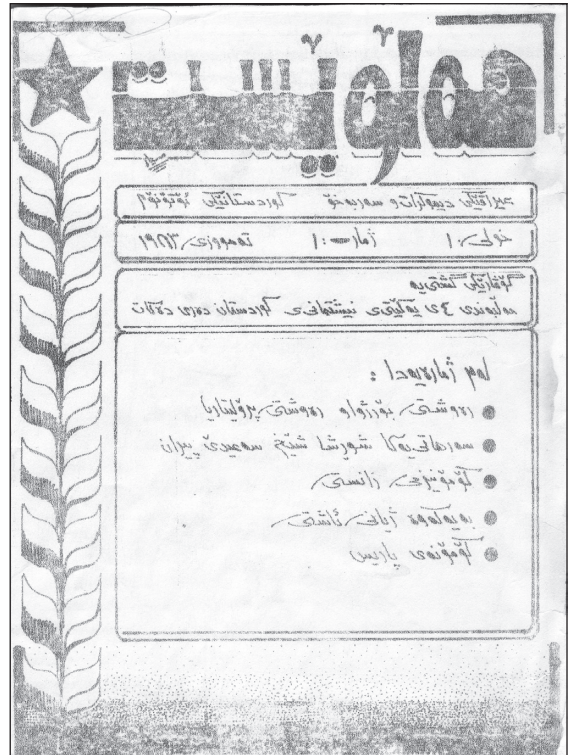 هەڵوێست
عیراقێکی دیموکرات و سەربەخۆ کوردستانێکی ئۆتۆنۆم
خولی: ١ ژمارە: ١ تەمووزی ١٩٨٣
گۆڤارێکی گشتی‌یە
مەڵبەندی ٤ی یەکێتی نیشتمانی کوردستان دەری دەکات
لەم ژمارەیەدا:
رەوشتی بۆرژواو رەوشتی پرۆلیتاریا
سەرهاتی‌یەکا شورشا شێخ سەعیدێ پیران
کۆمۆنیزمی زانستی
بەیەکەوە ژیانی ئاشتی
کۆمۆنەی پاریس